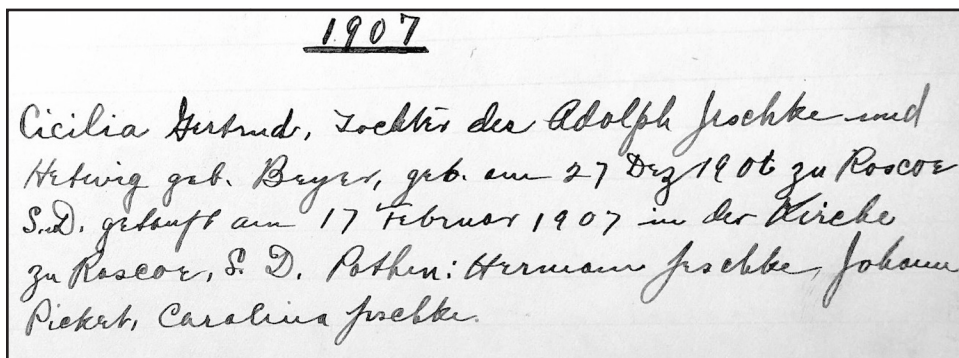 1907
Cicilia Gertrud, Tochter des Adolph Jeschke und
Hetwig geb. Beyer, geb. am 27 Dez 1906 zu Roscoe
S.D. getauft am 17 Februar 1907 in der Kirche
zu Roscoe, S. D. Pathen: Hermann Jeschke, Johann
Picket, Carolina Jeschke.